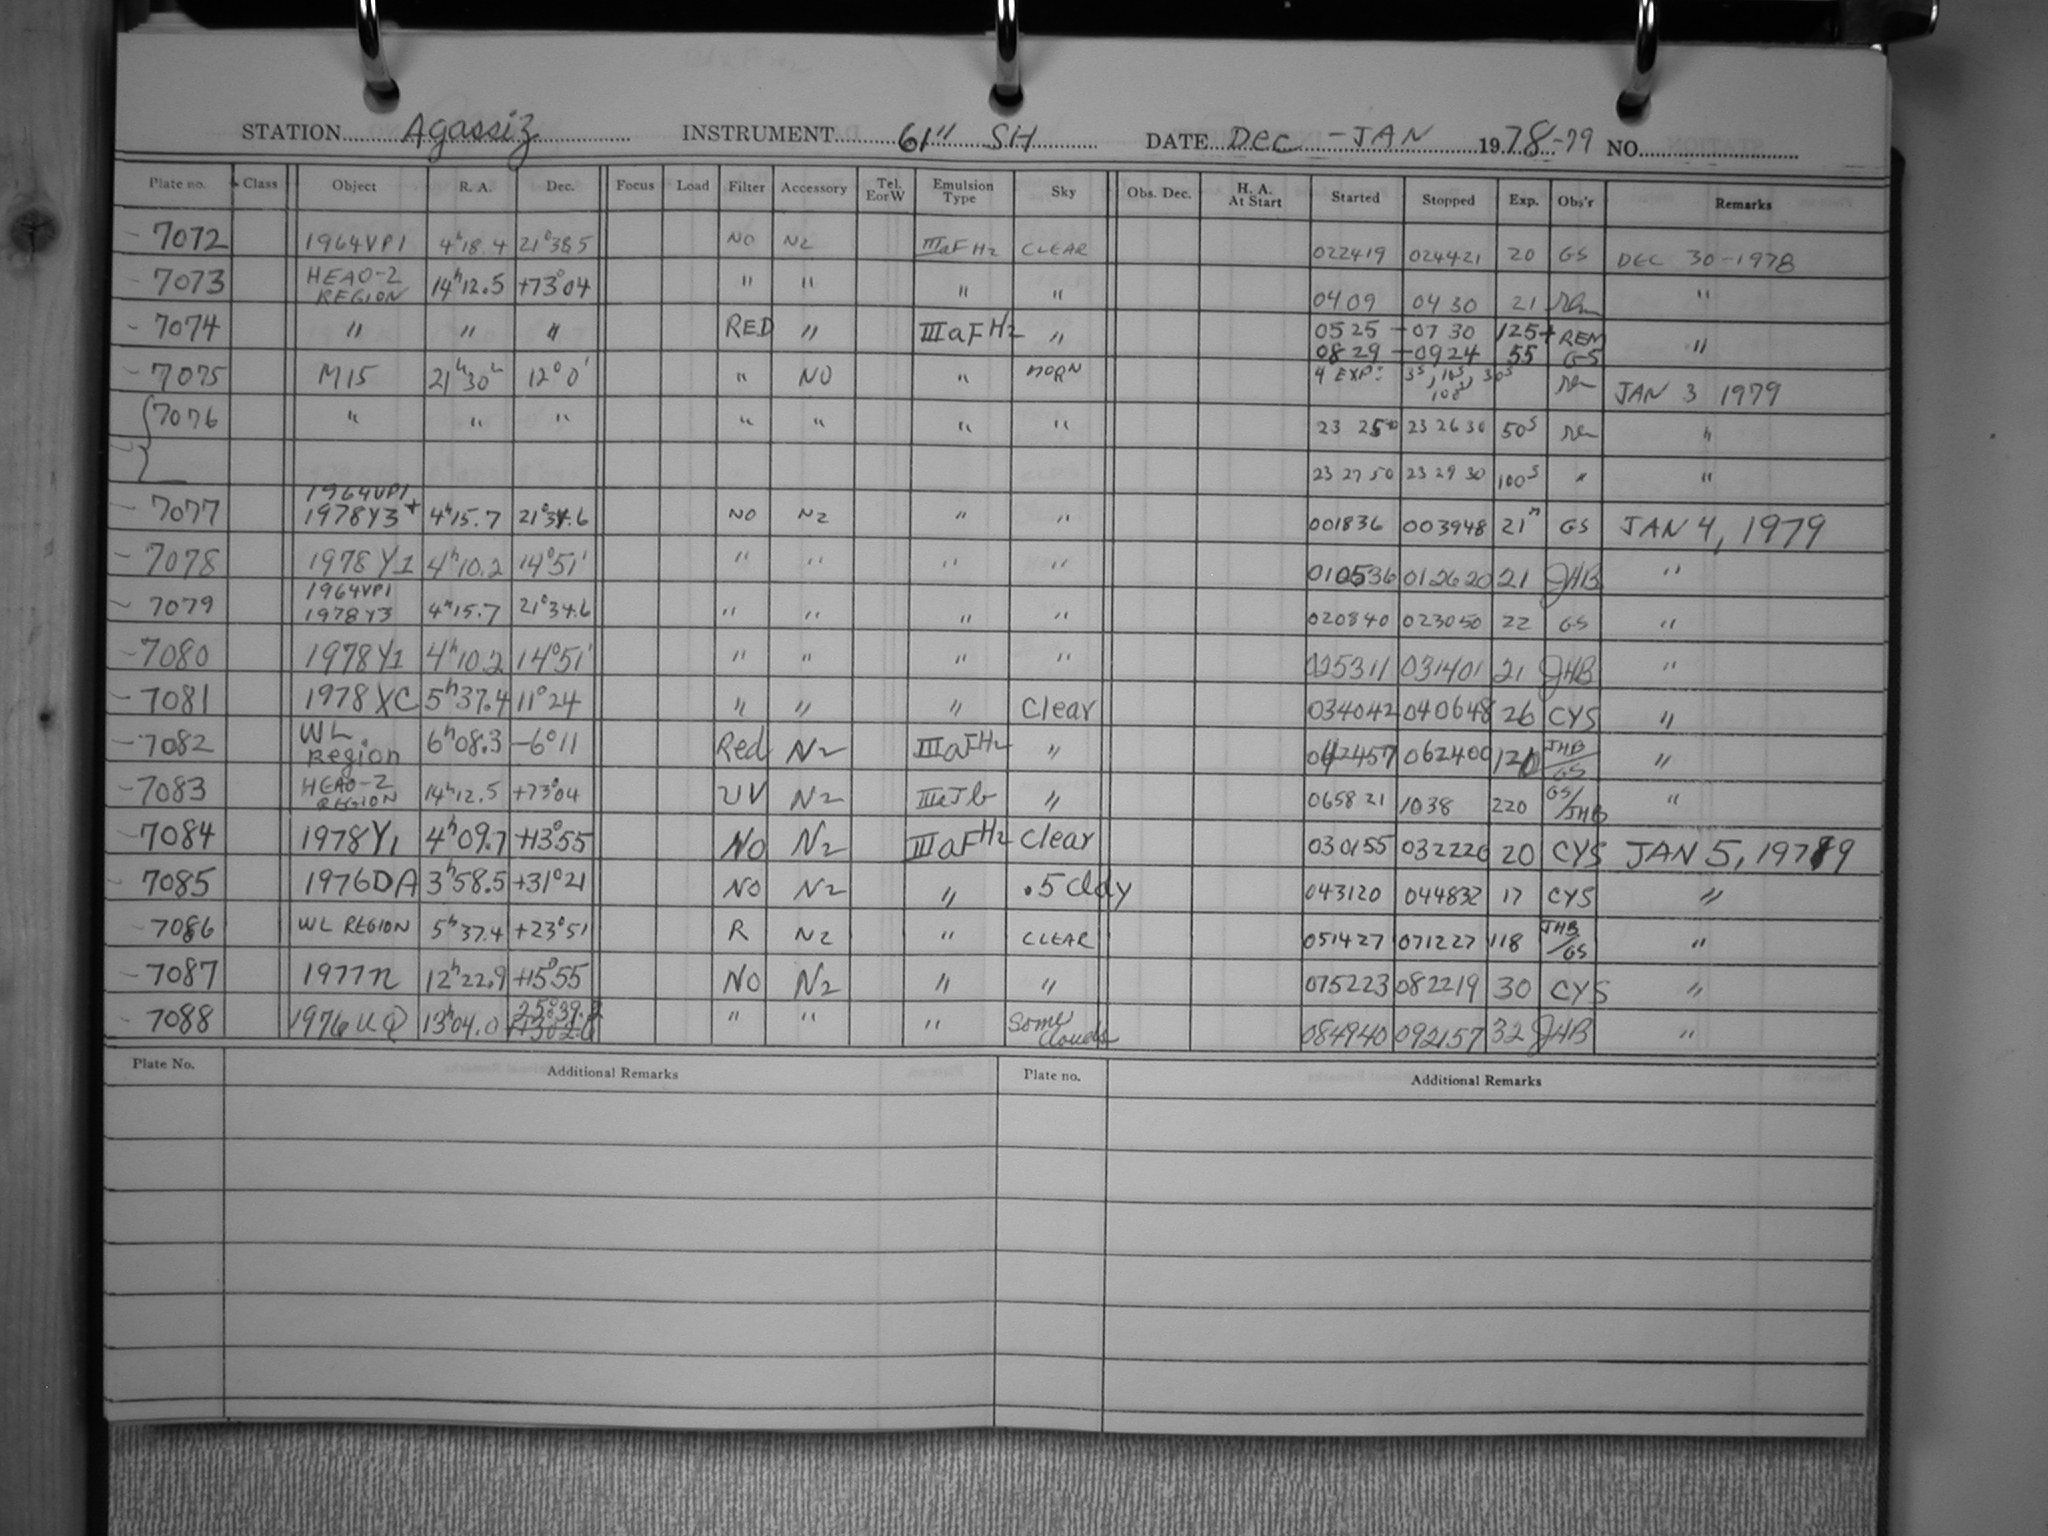 STATION Agassiz INSTRUMENT 61" SH DATE Dec - JAN 1978-79 NO.
Plate no. Class Object R. A. Dec. Focus Load Filter Accessory Tel. EorW Emulsion Type Sky Obs. Dec. H. A. At Start Started Stopped Exp. Obs'r Remarks
7072 1964VP1 4h18.4 21°38.5 NO N2 IIIaFH2 CLEAR 022419 024421 20 GS DEC 30-1978
7073 HEAO-2 REGION 14h12.5 +73°04 " " " " 0409 0430 21 rem "
7074 " " " RED " IIIaFH2 " 0525 - 0730 125+ REM "
0829 - 0924 55 GS
7075 M15 21h30m 12°0' " NO " NORM 4 EXP: 3s, 10s, 30s 100s rem JAN 3 1979
7076 " " " " " " " 23 25 40 23 26 30 50s rem "
23 27 50 23 29 30 100s " "
7077 1964VP1 + 1978Y3 4h15.7 21°34.6 NO N2 " " 001836 003948 21m GS JAN 4, 1979
7078 1978 Y1 4h10.2 14°51' " " " " 010536 012620 21 JHB "
7079 1964VP1 1978Y3 4h15.7 21°34.6 " " " " 020840 023050 22 GS "
7080 1978Y1 4h10.2 14°51' " " " " 025311 031401 21 JHB "
7081 1978 XC 5h37.4 11°24 " " " Clear 034042 040648 26 CYS "
7082 WL Region 6h08.3 -6°11 Red N2 IIIaFH2 " 042457 062400 120 JHB/GS "
7083 HEAO-2 REGION 14h12.5 +73°04 UV N2 IIIaJb " 065821 1038 220 GS/JHB "
7084 1978Y1 4h09.7 +13°55 No N2 IIIaFH2 Clear 030155 032220 20 CYS JAN 5, 1979
7085 1976DA 3h58.5 +31°21 NO N2 " .5 Cldy 043120 044832 17 CYS "
7086 WL REGION 5h37.4 +23°51 R N2 " CLEAR 051427 071227 118 JHB/GS "
7087 1977n 12h22.9 +15°55 NO N2 " " 075223 082219 30 CYS "
7088 1976UQ 13h04.0 25°39.2 " " " Some Clouds 084940 092157 32 JHB "
Plate No. Additional Remarks Plate no. Additional Remarks